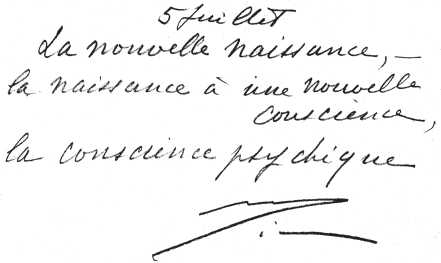 5 Juillet
La nouvelle naissance, –
la naissance à une nouvelle
conscience,
la conscience psychique